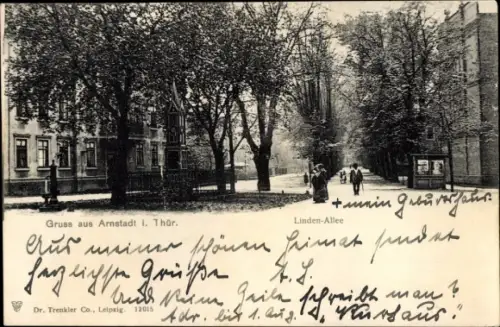 Gruss aus Arnstadt i. Thür.
Linden-Allee
+ mein Geburtshaus
Aus meiner schönen Heimat sendet
herzlichste Grüße
Und keine Zeile schreibt man?
Adr. bis 1. Aug. "Kurhaus"
Dr. Trenkler Co., Leipzig. 11615